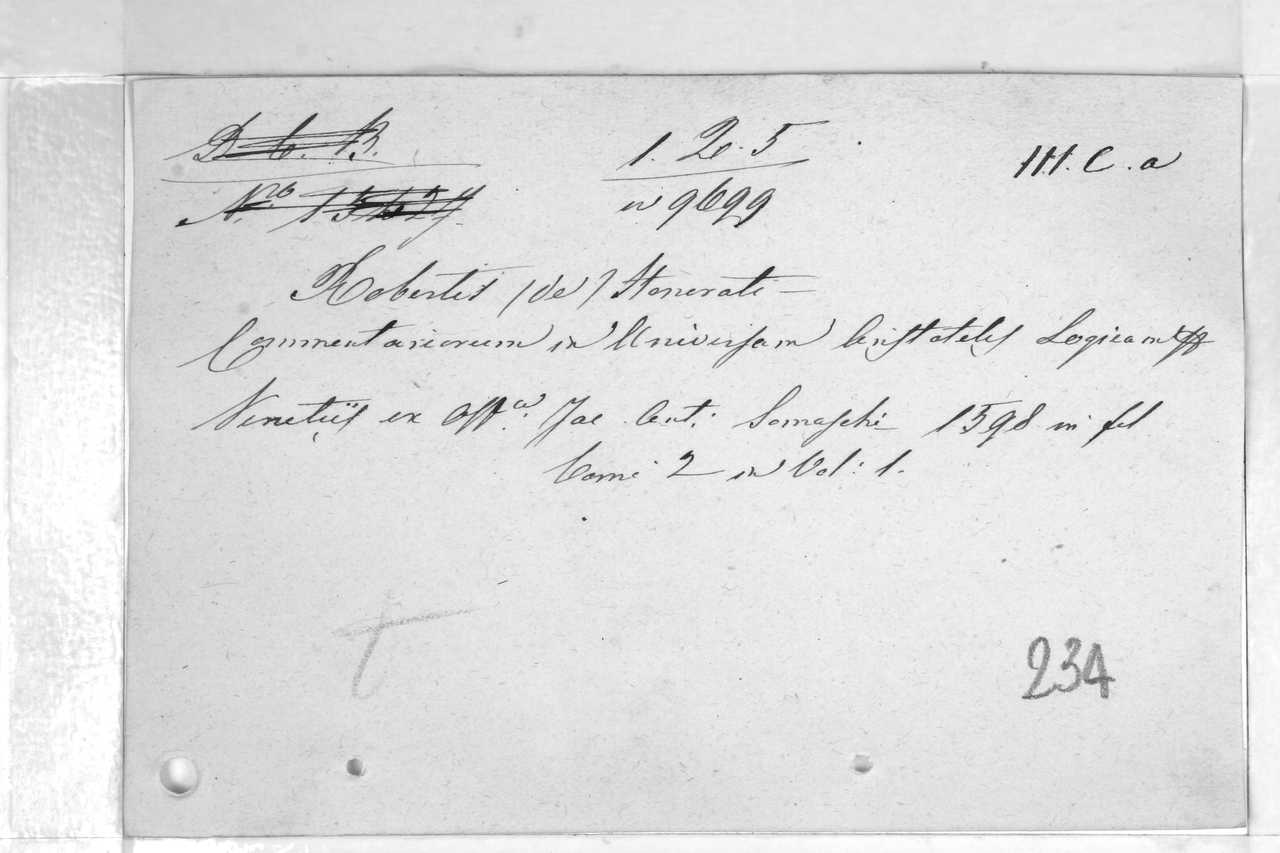 D. b. B. 1. Q. 5 III. C. a
N.ro in 9699
Robertis (de) Honorati =
Commentariorum in Universam Aristotelis Logicam
Venetiis ex Off.a Jac. Ant: Somaschi 1598 in fol
Tomi 2 in Vol: 1.
234